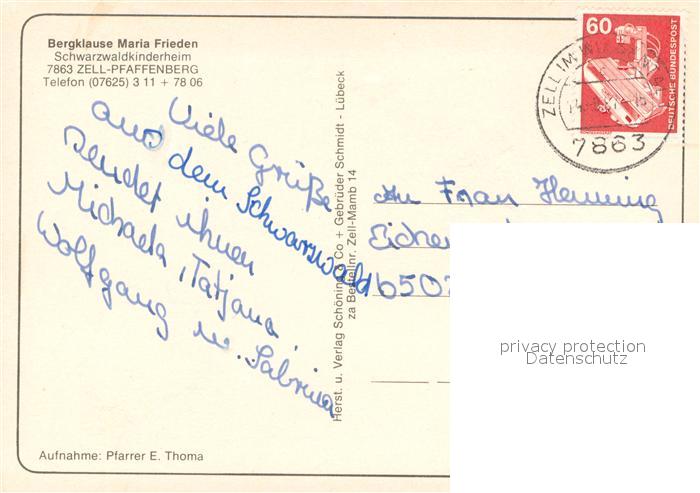 Bergklause Maria Frieden
Schwarzwaldkinderheim
7863 ZELL-PFAFFENBERG
Telefon (07625) 3 11 + 78 06
Viele Grüße
aus dem Schwarzwald
sendet ihnen
Michaela, Tatjana,
Wolfgang u. Sabrina
Aufnahme: Pfarrer E. Thoma
Herst. u. Verlag Schöning & Co + Gebrüder Schmidt - Lübeck
za Bestellnr. Zell-Mamb 14
60
DEUTSCHE BUNDESPOST
ZELL IM
7863
An Frau Henning
6502
privacy protection
Datenschutz